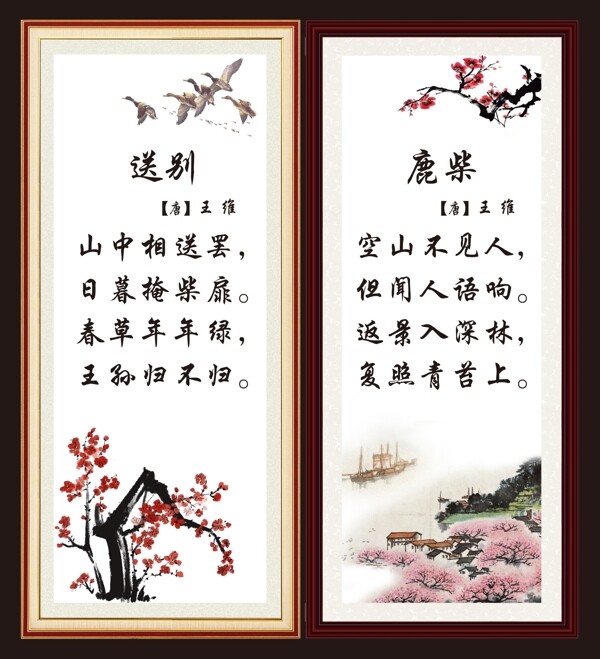 送别
【唐】王维
山中相送罢，
日暮掩柴扉。
春草年年绿，
王孙归不归。
鹿柴
【唐】王维
空山不见人，
但闻人语响。
返景入深林，
复照青苔上。